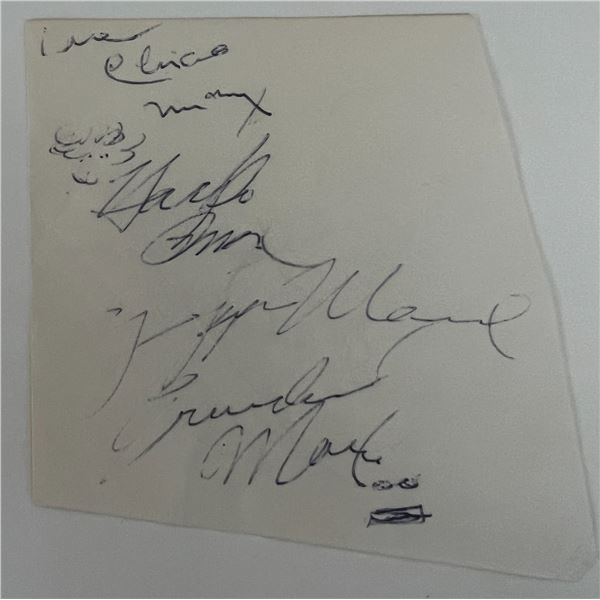 Chico
Marx
Harpo
Marx
Zeppo Marx
Groucho
Marx